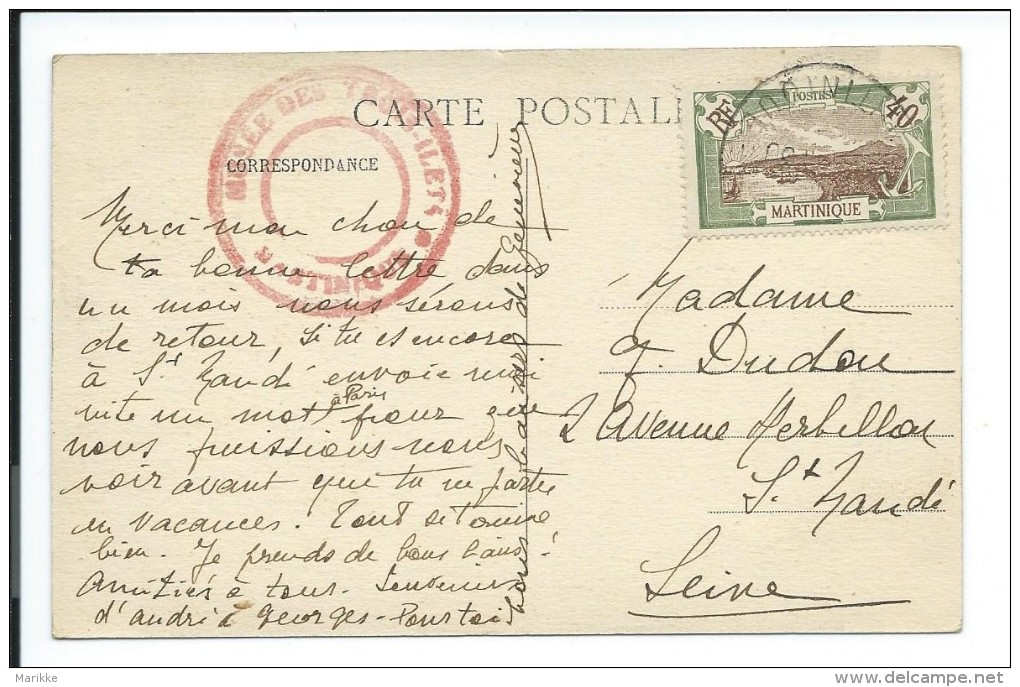 CARTE POSTALE
CORRESPONDANCE
MUSÉE DES
MARTINIQUE
RF
POSTES
40
MARTINIQUE
Merci mon chou de
ta bonne lettre dans
un mois nous sérons
de retour, si tu es encore
à St Mandé envoie moi
vite un mot à Paris pour que
nous puissions nous
voir avant que tu ne partes
en vacances. Tout se
bien. Je prends de bons bains!
Amitiés à tous. Souvenirs
d'andré à Georges - Pour toi
tous les baisers de Geneviève
Madame
Dudou
2 Avenue Herbillon
St Mandé
Seine
Marikke
www.delcampe.net